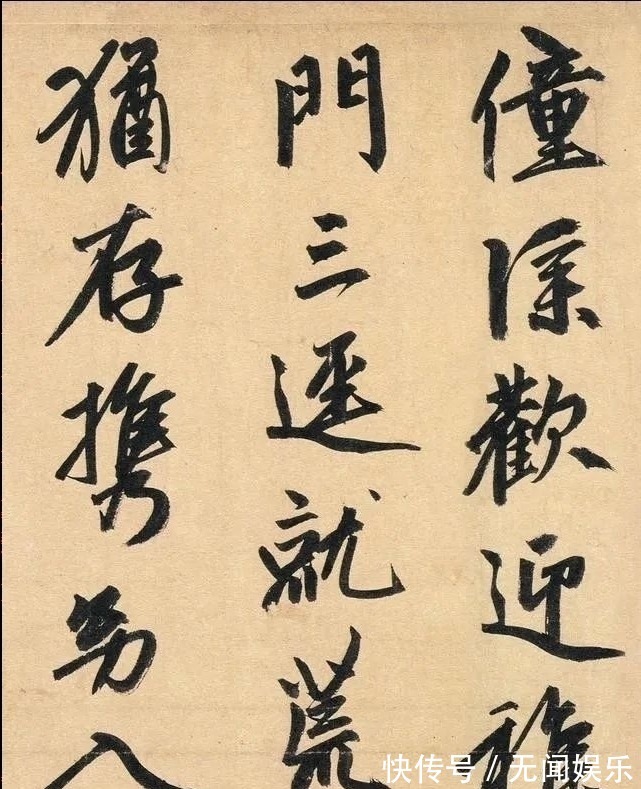 僮僕歡迎稚
門三逕就荒
猶存攜幼入
快传号/无闻娱乐